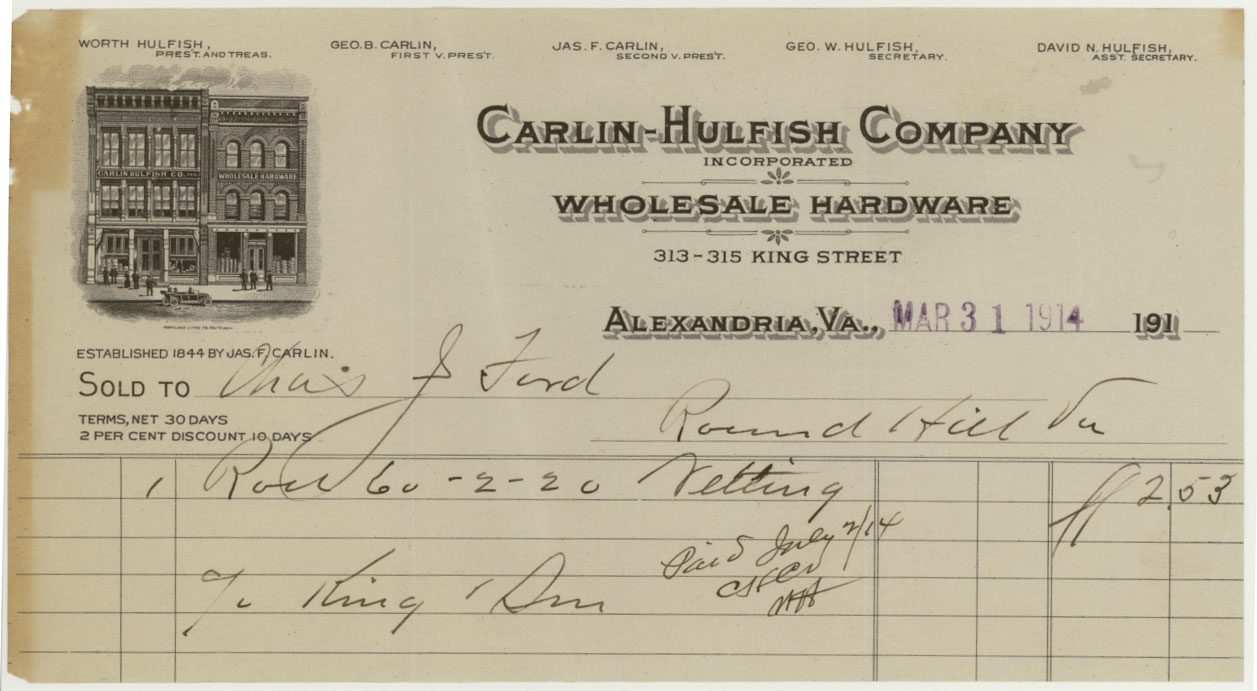 WORTH HULFISH, PREST. AND TREAS.
GEO. B. CARLIN, FIRST V. PREST.
JAS. F. CARLIN, SECOND V. PREST.
GEO. W. HULFISH, SECRETARY.
DAVID N. HULFISH, ASST. SECRETARY.
CARLIN HULFISH CO. INC.
WHOLESALE HARDWARE
CARLIN-HULFISH COMPANY
INCORPORATED
WHOLESALE HARDWARE
313-315 KING STREET
ALEXANDRIA, VA., MAR 31 1914 191
ESTABLISHED 1844 BY JAS. F. CARLIN.
SOLD TO Chas J Ford
TERMS, NET 30 DAYS
2 PER CENT DISCOUNT 10 DAYS
Round Hill Va
1 Roll 60-2-20 Netting 2.53
Paid July 2/14
King